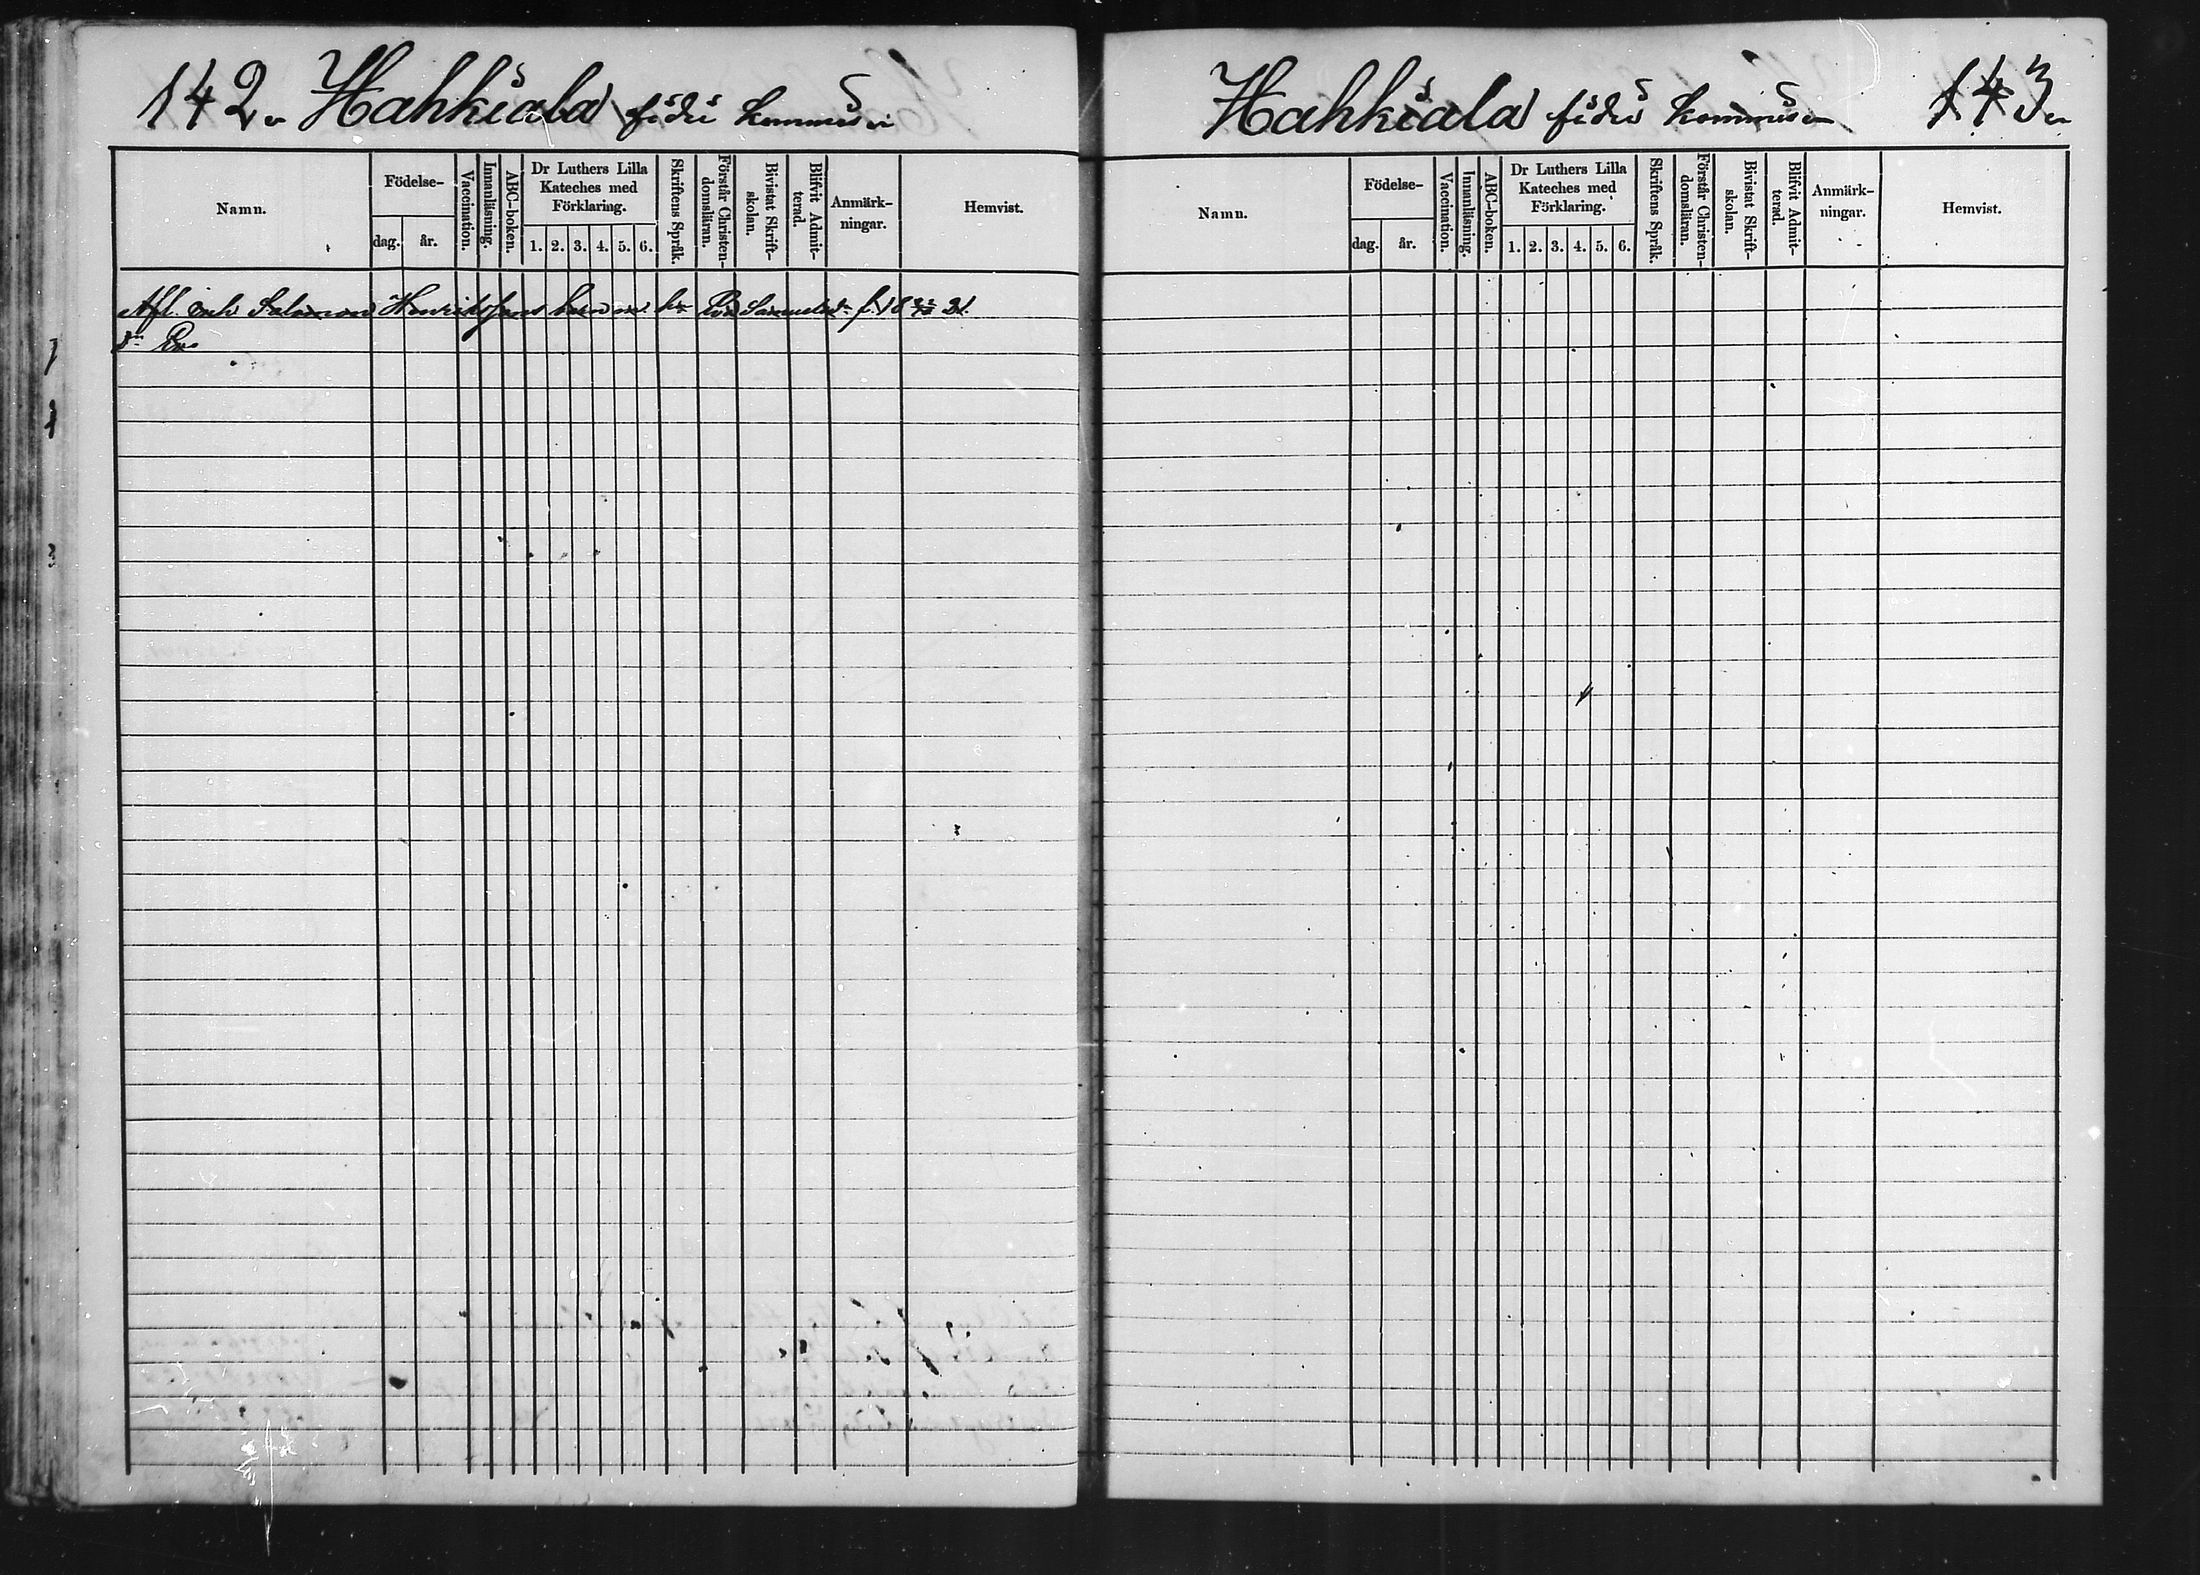 142
Hahkiala fidei kommiss
Namn.
Födelse-
dag.
år.
Vaccination.
Innanläsning.
ABC-boken.
Dr Luthers Lilla
Kateches med
Förklaring.
1. 2. 3. 4. 5. 6.
Skriftens Språk.
Förstår Christen-
domsläran.
Bivistat Skrift-
skolan.
Blifvit Admit-
terad.
Anmärk-
ningar.
Hemvist.
Afl. Salomon Henrikssons barn Samuelsdr f. 18 21
Dr Eva
Hahkiala fidei kommiss
143
Namn.
Födelse-
dag.
år.
Vaccination.
Innanläsning.
ABC-boken.
Dr Luthers Lilla
Kateches med
Förklaring.
1. 2. 3. 4. 5. 6.
Skriftens Språk.
Förstår Christen-
domsläran.
Bivistat Skrift-
skolan.
Blifvit Admit-
terad.
Anmärk-
ningar.
Hemvist.